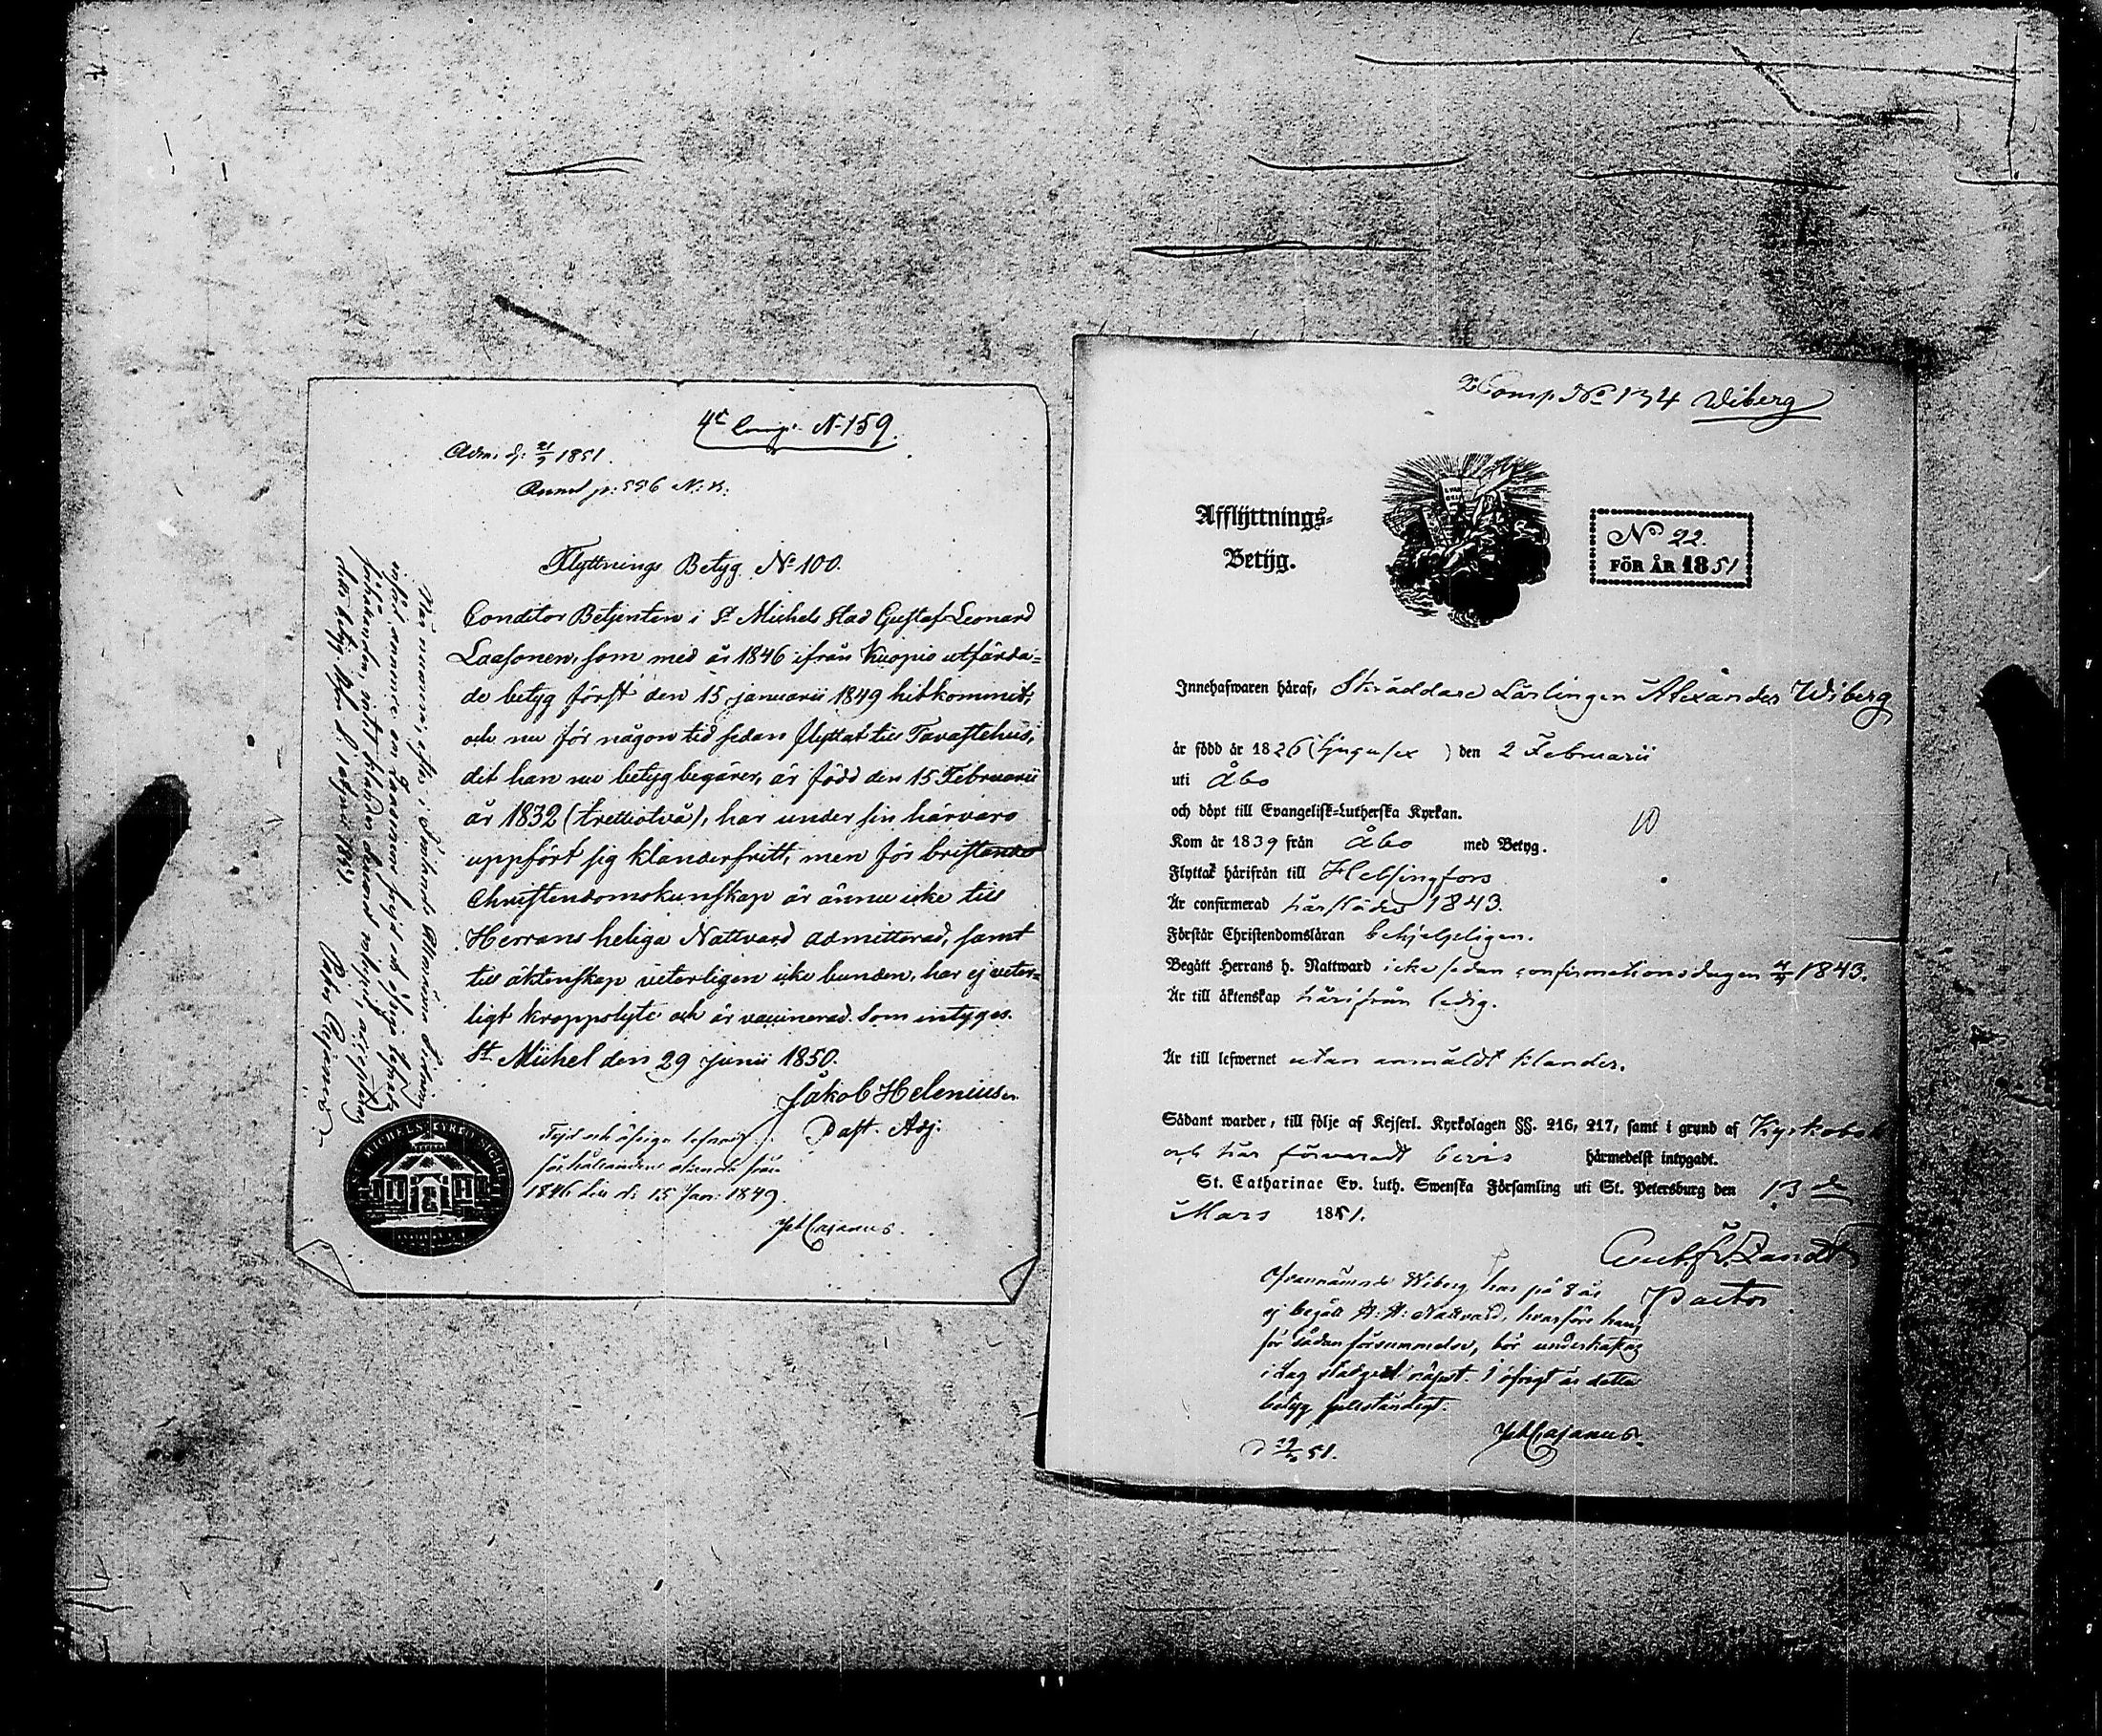 4t Comp. N 159.
Adm. d. 21/9 1851.
p: 556 N:
Flyttnings Betyg N:o 100.
Conditor Betjenten i St Michels Stad Gustaf Leonard
Laasonen, som med år 1846 ifrån Kuopio utfärda-
de betyg först den 15 januarii 1849 hitkommit,
och nu för någon tid sedan flyttat till Tavastehus,
dit han nu betyg begärer, är född den 15 Februarii
år 1832 (trettiotvå), har under sin härvaro
uppfört sig klanderfritt, men för bristande
Christendomskunskap är ännu icke till
Herrans heliga Nattvard admitterad, samt
till äktenskap veterligen icke bunden, har ej veter-
ligt kroppslyte och är vaccinerad. Som intygas.
St Michel den 29 Junii 1850.
Jakob Helenius
Past. Adj.
Frejd och öfriga
förhållanden från
1846 till d: 15 Jan. 1849.
Cajanus.
När numera, efter i Finlands Allmänna Tidning
införd annonce om Laasonens frejd och öfriga lefnads
förhållanden, intet klander
detta betyg d. 1 1851.
Cajanus
ST MICHELS KYRKO SIGILL
Comp No 134 Wiberg
Afflyttnings-
Betyg.
No 22.
FÖR ÅR 1851
Innehafwaren håraf, Skräddare Lärlingen Alexander Wiberg
år född år 1826 (tjugusex) den 2 Februarii
uti Åbo
och döpt till Evangelisk-Lutherska Kyrkan.
Kom år 1839 från Åbo med Betyg.
10
Flyttat hårifrån till Helsingfors
Är confirmerad härstädes 1843.
Förstår Christendomslåran behjelpeligen.
Begått Herrans h. Nattward icke sedan confirmationsdagen 1843.
Är till åktenskap härifrån ledig.
Är till lefwernet utan anmäldt klander.
Sådant warder, till följe af Kejserl. Kyrkolagen §§. 216, 217, samt i grund af Kyrkobok
och här förvaradt bevis hårmedelst intygadt.
St. Catharinae Ev. Luth. Swenska Församling uti St. Petersburg den 13de
Mars 1851.
Zandt
Pastor
Ofvannämnde Wiberg har på 8 år
ej begått H. H. Nattvard, hvarföre han,
för sådan försummelse, bör underkastas
i lag stadgad näpst. I öfrigt är detta
betyg fullständigt.
51.
Cajanus.